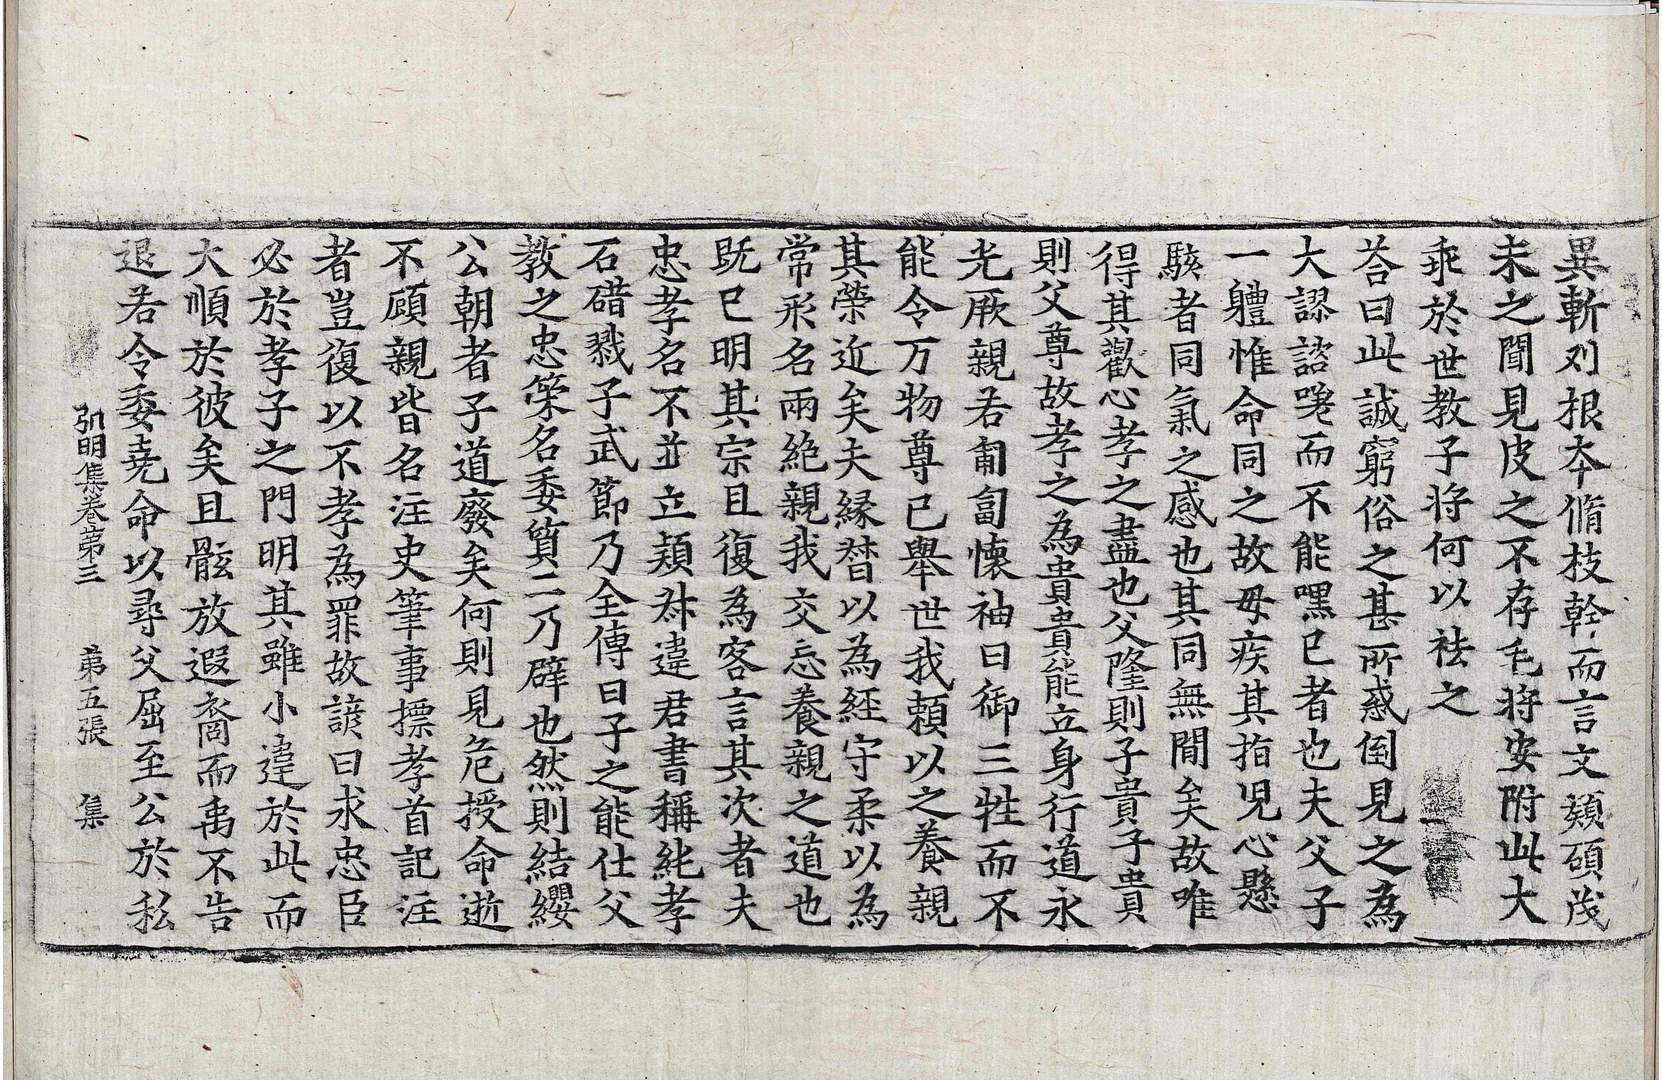 異斬刈根本脩枝幹而言文頴碩茂
未之聞見皮之不存毛將安附此大
乖於世教子將何以祛之
荅曰此誠窮俗之甚所惑倒見之為
大謬諮嗟而不能嘿已者也夫父子
一軆惟命同之故母疾其指児心懸
駭者同氣之感也其同無閒矣故唯
得其歡心孝之盡也父隆則子貴子貴
則父尊故孝之為貴貴能立身行道永
光厥親若匍匐懷袖曰御三牲而不
能令万物尊己舉世我頼以之養親
其榮近矣夫縁督以為經守柔以為
常形名兩絶親我交忘養親之道也
既已明其宗且復為客言其次者夫
忠孝名不並立穎叔違君書稱純孝
石碏戮子武節乃全傳曰子之能仕父
教之忠策名委質二乃辟也然則結纓
公朝者子道廢矣何則見危授命逝
不顧親皆名注史筆事摽孝首記注
者豈復以不孝為罪故諺曰求忠臣
必於孝子之門明其雖小違於此而
大順於彼矣且骸放遐裔而禹不告
退若令委堯命以尋父屈至公於私
弘明集卷第三 第五張 集